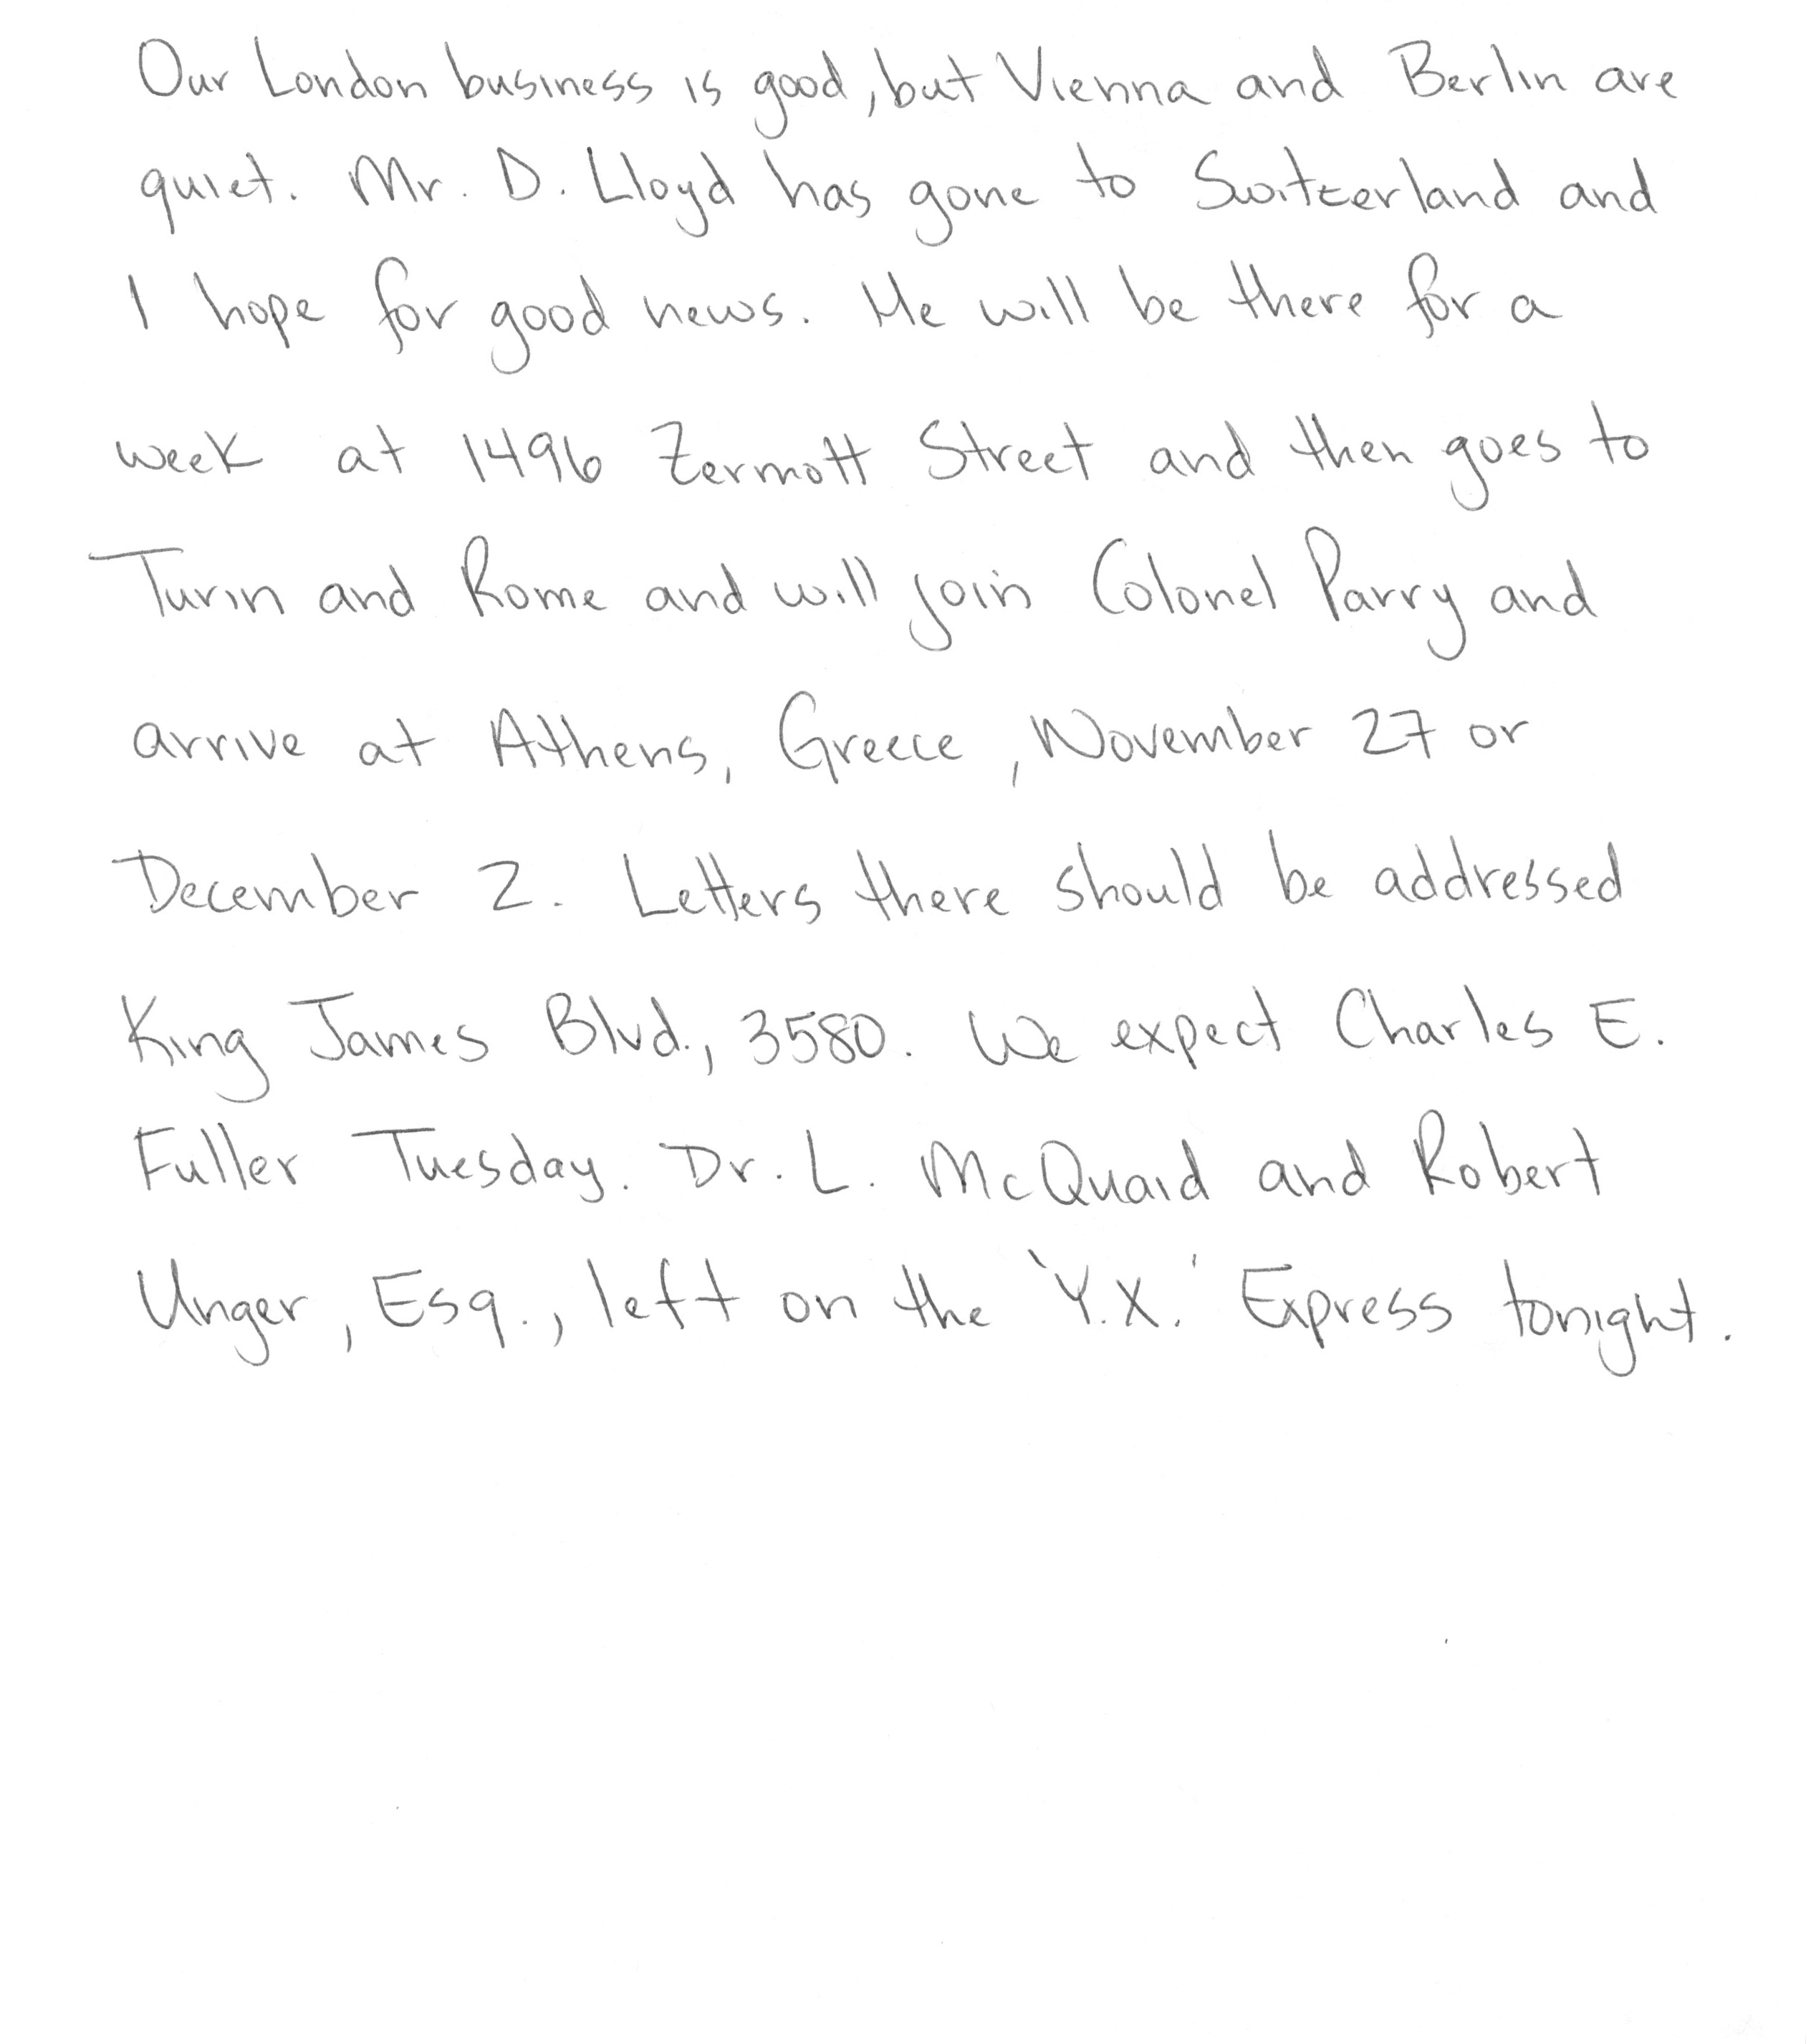 Our London business is good, but Vienna and Berlin are
quiet. Mr. D. Lloyd has gone to Switzerland and
I hope for good news. He will be there for a
week at 1496 Zermott Street and then goes to
Turin and Rome and will join Colonel Parry and
arrive at Athens, Greece, November 27 or
December 2. Letters there should be addressed
King James Blvd., 3580. We expect Charles E.
Fuller Tuesday. Dr. L. McQuaid and Robert
Unger, Esq., left on the 'Y.X.' Express tonight.